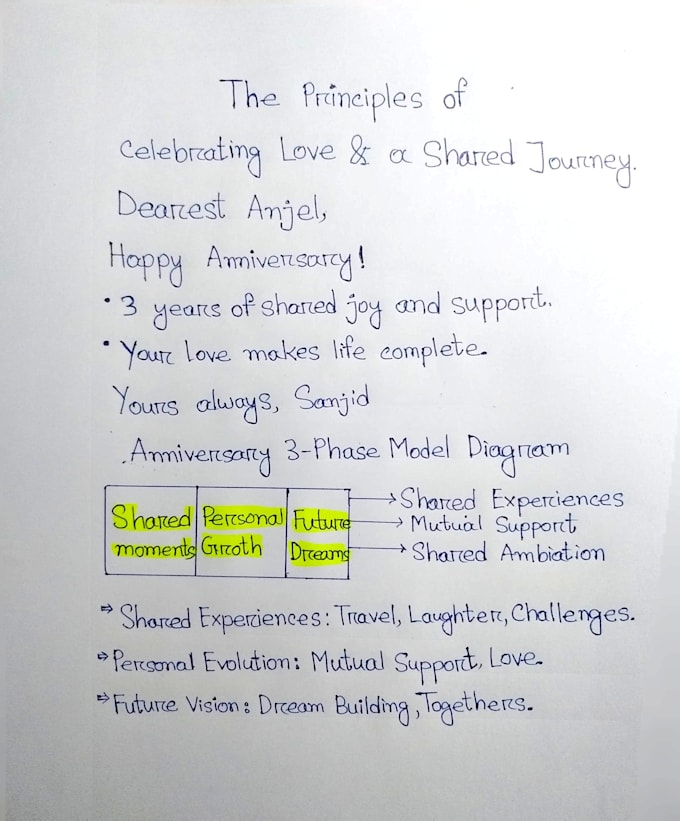 The Principles of
Celebrating Love & a Shared Journey.
Dearest Anjel,
Happy Anniversary!
• 3 years of shared joy and support.
• Your love makes life complete.
Yours always, Sanjid
Anniversary 3-Phase Model Diagram
Shared moments
Personal Groth
Future Dreams
→ Shared Experiences
→ Mutual Support
→ Shared Ambiation
⇒ Shared Experiences: Travel, Laughter, Challenges.
⇒ Personal Evolution: Mutual Support, Love.
⇒ Future Vision: Dream Building, Togethers.